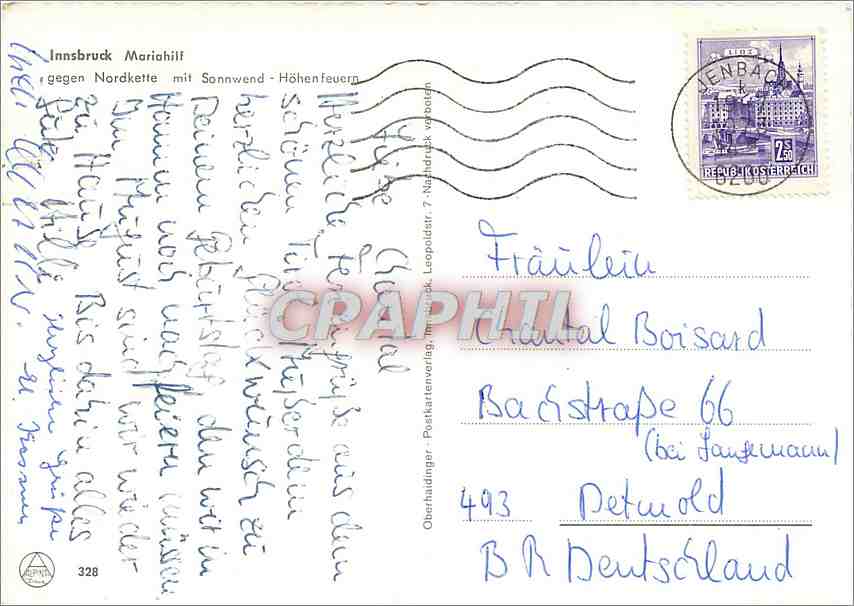 Innsbruck Mariahilf
gegen Nordkette mit Sonnwend-Höhenfeuern
Liebe Chantal
Herzliche Feriengrüße aus dem
schönen Tirol. Außerdem
herzlichen Glückwunsch zu
Deinem Geburtstag den wir in
Hamm noch nachfeiern müssen
Im August sind wir wieder
zu Hause. Bis dahin alles
Gute
herzliche Grüße
Oberhaidinger-Postkartenverlag, Innsbruck, Leopoldstr. 7 · Nachdruck verboten
LINZ
2.50 S
REPUBLIK ÖSTERREICH
JENBACH
6200
Fräulein
Chantal Boisard
Bachstraße 66
(bei Langemann)
493 Detmold
BR Deutschland
CRAPHIL
ALPINA
328